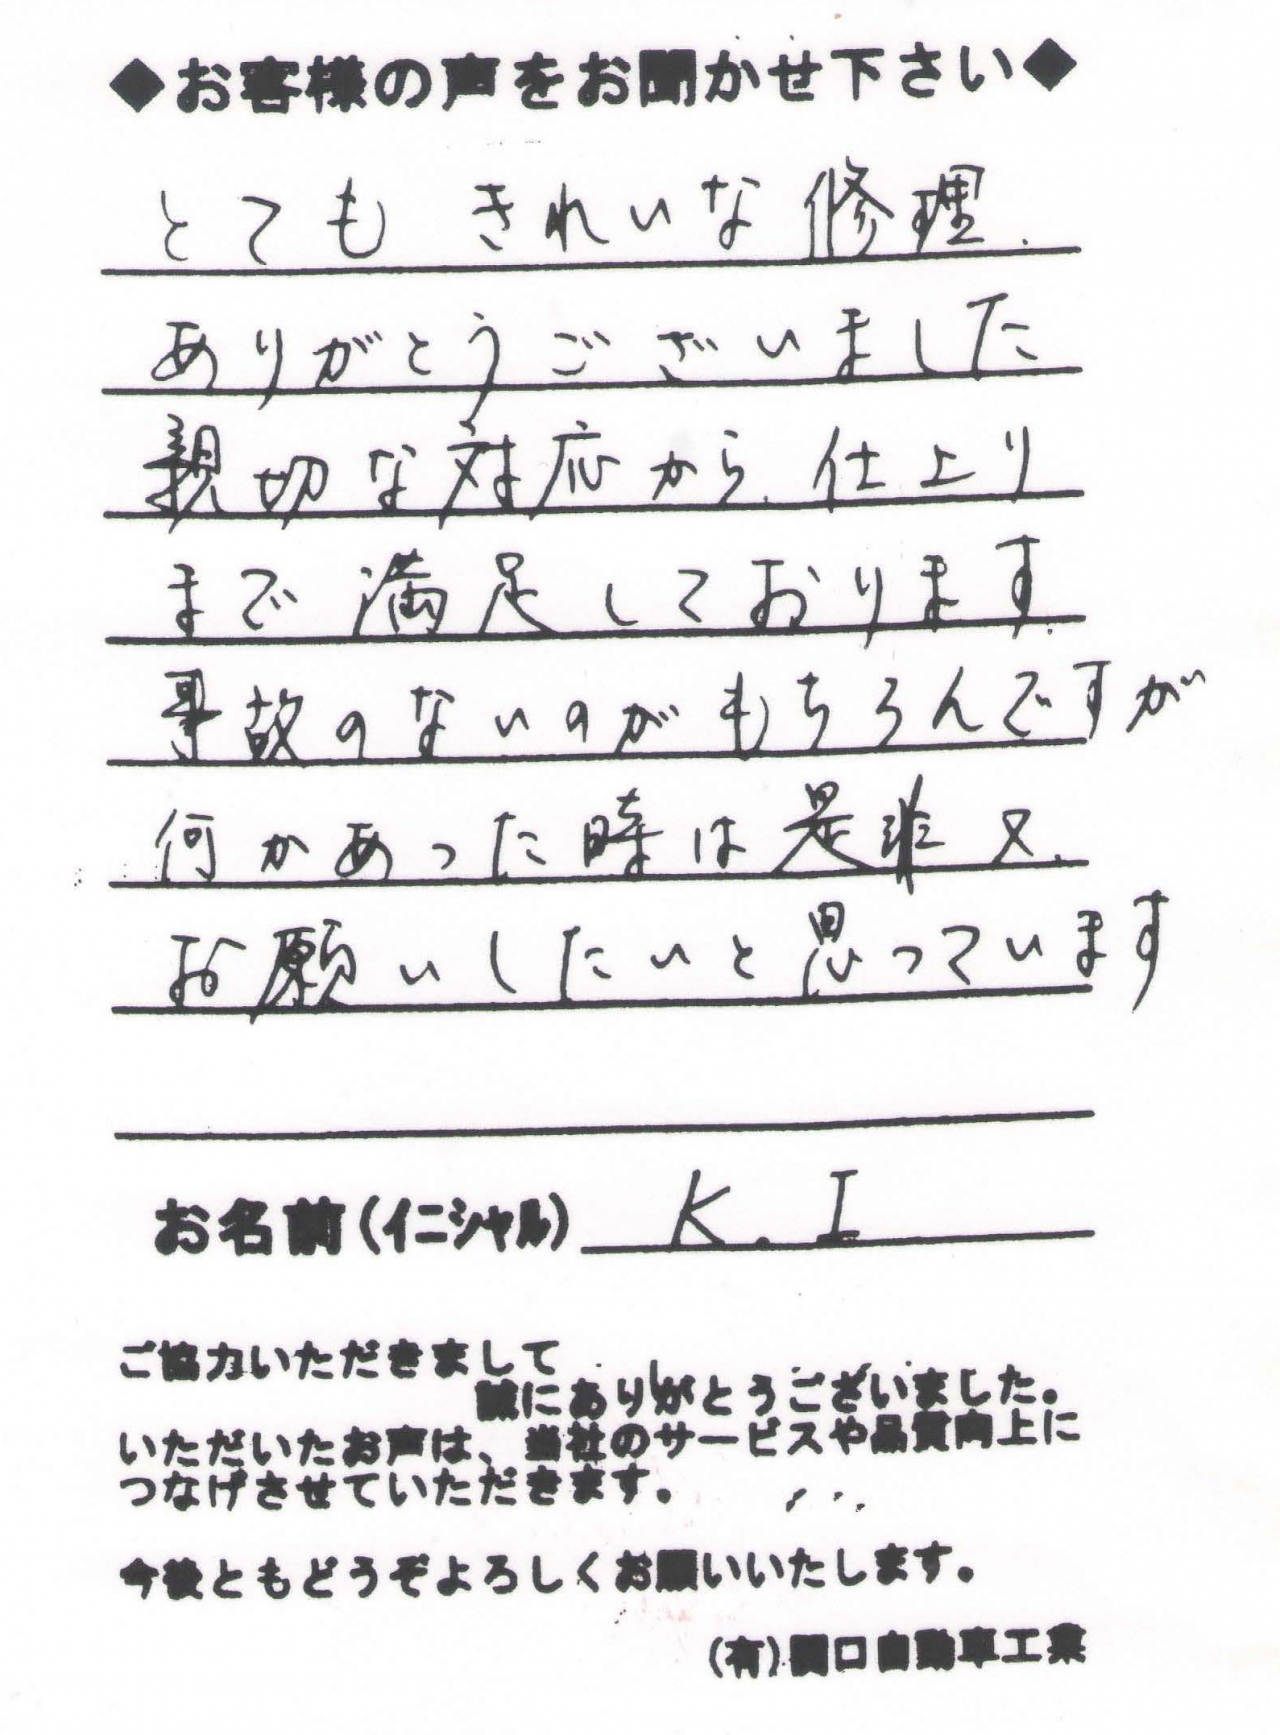 ◆お客様の声をお聞かせ下さい◆
とても きれいな修理.
ありがとうございました
親切な対応から. 仕上り
まで 満足しております.
事故のないのがもちろんですが
何かあった時は是非又.
お願いしたいと思っています
お名前(イニシャル) K. I
ご協力いただきまして
誠にありがとうございました。
いただいたお声は、当社のサービスや品質向上に
つなげさせていただきます。
今後ともどうぞよろしくお願いいたします。
(有)関口自動車工業